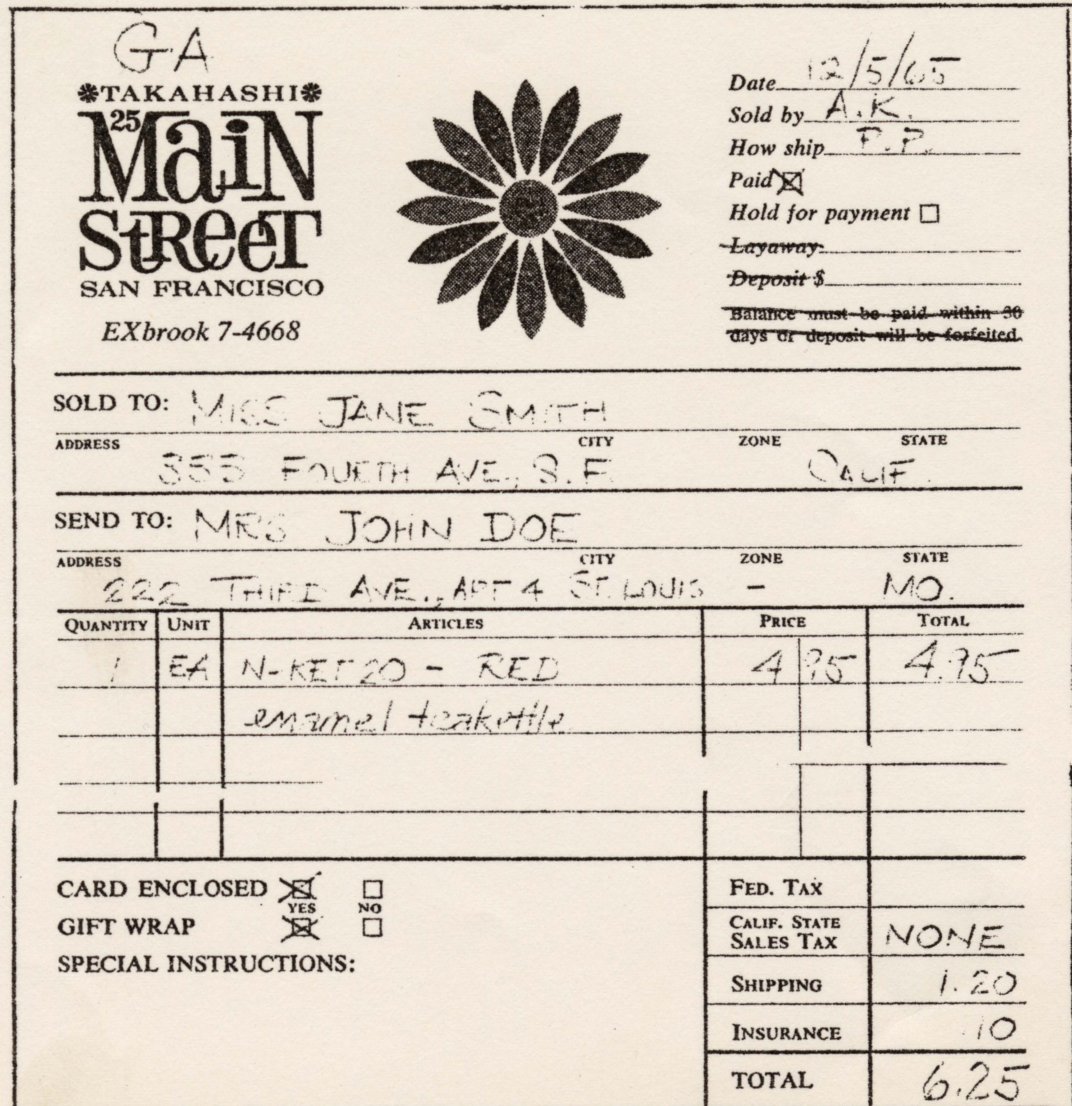 GA
TAKAHASHI
25 MAIN STREET
SAN FRANCISCO
EXbrook 7-4668
Date 12/5/65
Sold by A.K.
How ship P.P.
Paid
Hold for payment
Layaway
Deposit $
Balance must be paid within 30
days or deposit will be forfeited.
SOLD TO: MISS JANE SMITH
ADDRESS CITY ZONE STATE
355 FOURTH AVE., S.F. CALIF.
SEND TO: MRS JOHN DOE
ADDRESS CITY ZONE STATE
222 THIRD AVE., APT 4 ST. LOUIS - MO.
QUANTITY UNIT ARTICLES PRICE TOTAL
1 EA N-KET 20 - RED 4 95 4.95
enamel teakettle
CARD ENCLOSED
YES NO
GIFT WRAP
SPECIAL INSTRUCTIONS:
FED. TAX
CALIF. STATE
SALES TAX NONE
SHIPPING 1.20
INSURANCE .10
TOTAL 6.25